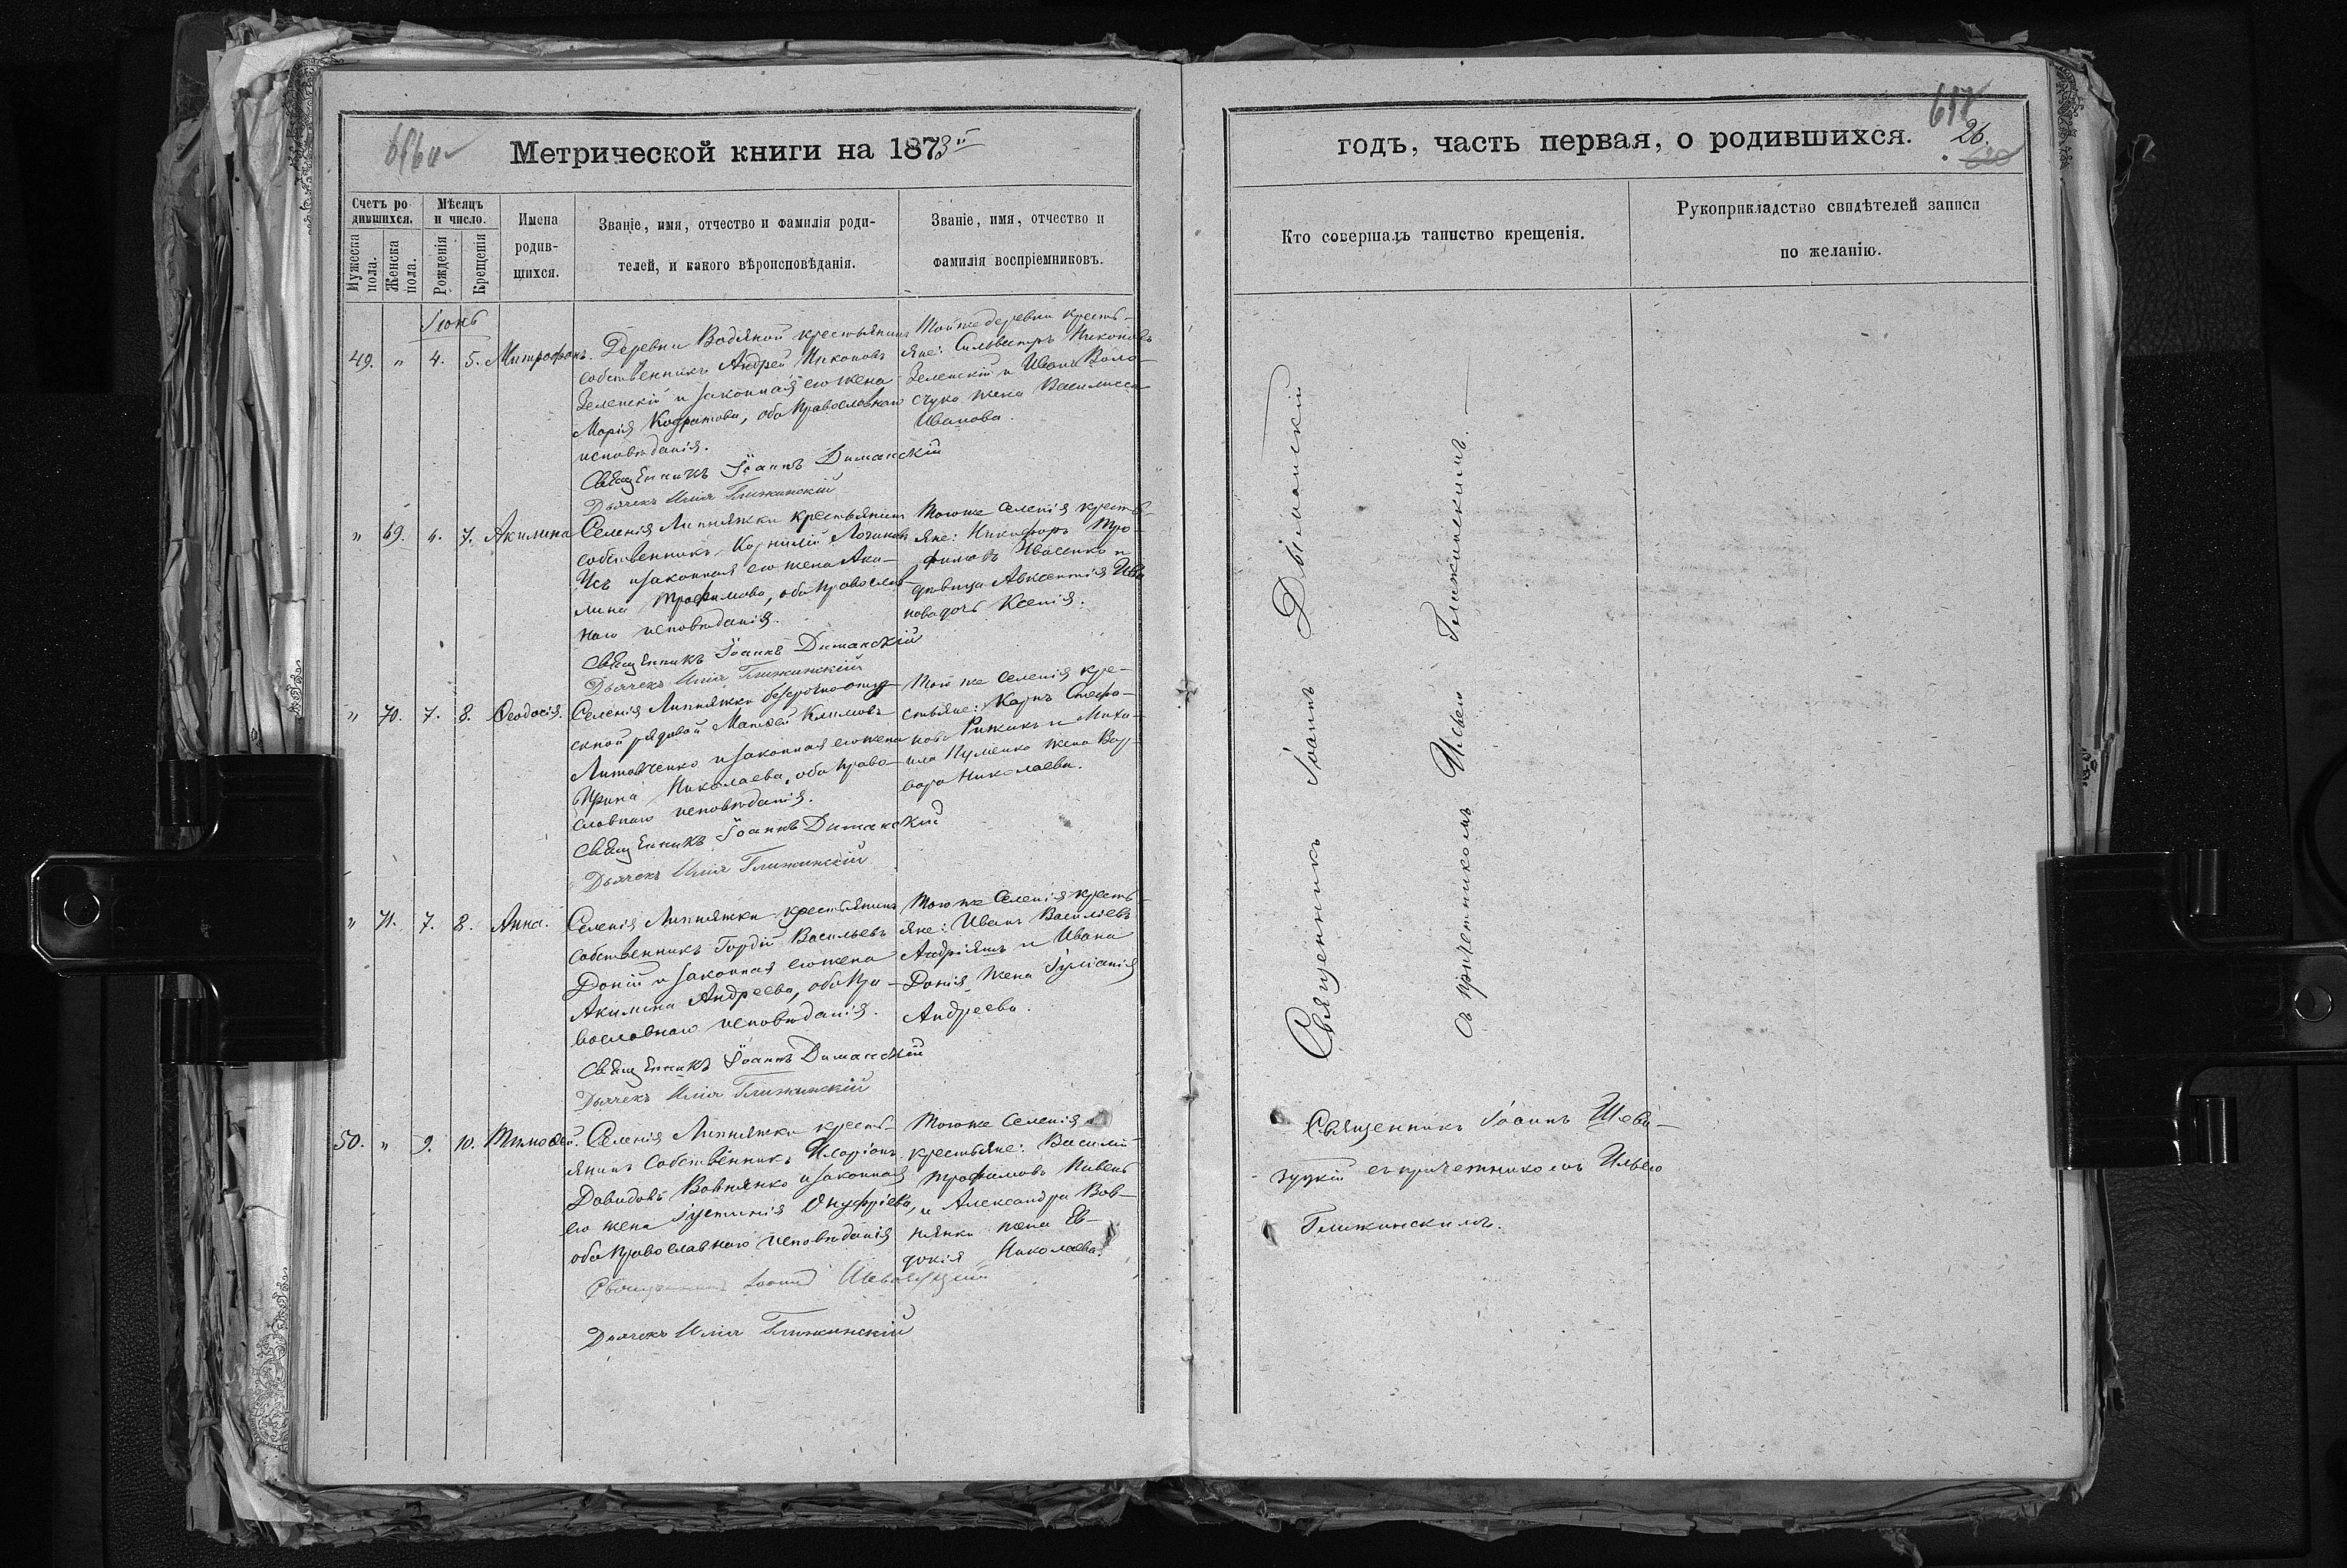 Метрической книги на 1873й
Счетъ ро
дившихся.
Мѣсяцъ
и число.
Мужеска
пола.
Женска
пола.
Рожденія
Крещенія
Имена
родив-
шихся.
Званіе, имя, отчество и фамилія роди-
телей, и какого вѣроисповѣданія.
Званіе, имя, отчество и
фамилія воспріемниковъ.
Іюнь
49. " 4. 5. Митрофанъ.
Деревни Водяной крестьянинъ
собственникъ Андрей Никоновъ
Зеленскій и законная его жена
Марія Кодратова, оба православнаго
исповѣданія.
Священникъ Іоаннъ Диманскій
Дьячекъ Илія Глижинскій
Той же деревни кресть-
яне: Сильвестръ Никоновъ
Зеленскій и Ивана Воло-
щука жена Василисса
Иванова.
" 69. 4. 7. Акилина
Селенія Липняжки крестьянинъ
собственникъ Корнилій Логиновъ
и законная его жена Аки-
лина Трофимова, оба православ-
наго исповѣданія.
Священникъ Іоаннъ Диманскій
Дьячекъ Илія Глижинскій
Того же селенія кресть-
яне: Никифоръ Тро-
фимовъ Ивасенко и
дѣвица Авксентія Ива
нова дочь Ксенія.
" 70. 7. 8. Ѳеодосія.
Селенія Липняжки безсрочно-отпу-
скной рядовой Матвѣй Климовъ
Литовченко и законная его жена
Ирина Николаева, оба право-
славнаго исповѣданія.
Священникъ Іоаннъ Диманскій
Дьячекъ Илія Глижинскій
Той же селенія кре-
стьяне: Карпъ Стефа-
новъ Рижикъ и Миха-
ила Куменко жена Вар-
вара Николаева.
" 71. 7. 8. Анна.
Селенія Липняжки крестьянинъ
собственникъ Гордій Васильевъ
Доній и законная его жена
Акилина Андреева, оба пра-
вославнаго исповѣданія.
Священникъ Іоаннъ Диманскій
Дьячекъ Илія Глижинскій
Того же селенія кресть-
яне: Иванъ Василіевъ
Андріяшъ и Ивана
Донія жена Іуліанія
Андреева.
50. " 9. 10. Тимоѳей.
Селенія Липняжки кресть-
янинъ собственникъ Иларіонъ
Давидовъ Вовнянко и законная
его жена Іустинія Онуфріева,
оба православнаго исповѣданія
Священникъ Іоаннъ Шевазуцкій
Дьячекъ Илія Глижинскій
Того же селенія
крестьяне: Василій
Трофимовъ Пивень
и Александра Вов-
нянки жена Ев-
докія Николаева.
годъ, часть первая, о родившихся.
617
26.
Кто совершалъ таинство крещенія.
Рукоприкладство свидѣтелей записи
по желанію.
Священникъ Іоаннъ Диманскій
съ причетникомъ Ильею Глижинскимъ.
Священникъ Іоаннъ Шева-
зуцкій съ причетникомъ Ильею
Глижинскимъ.